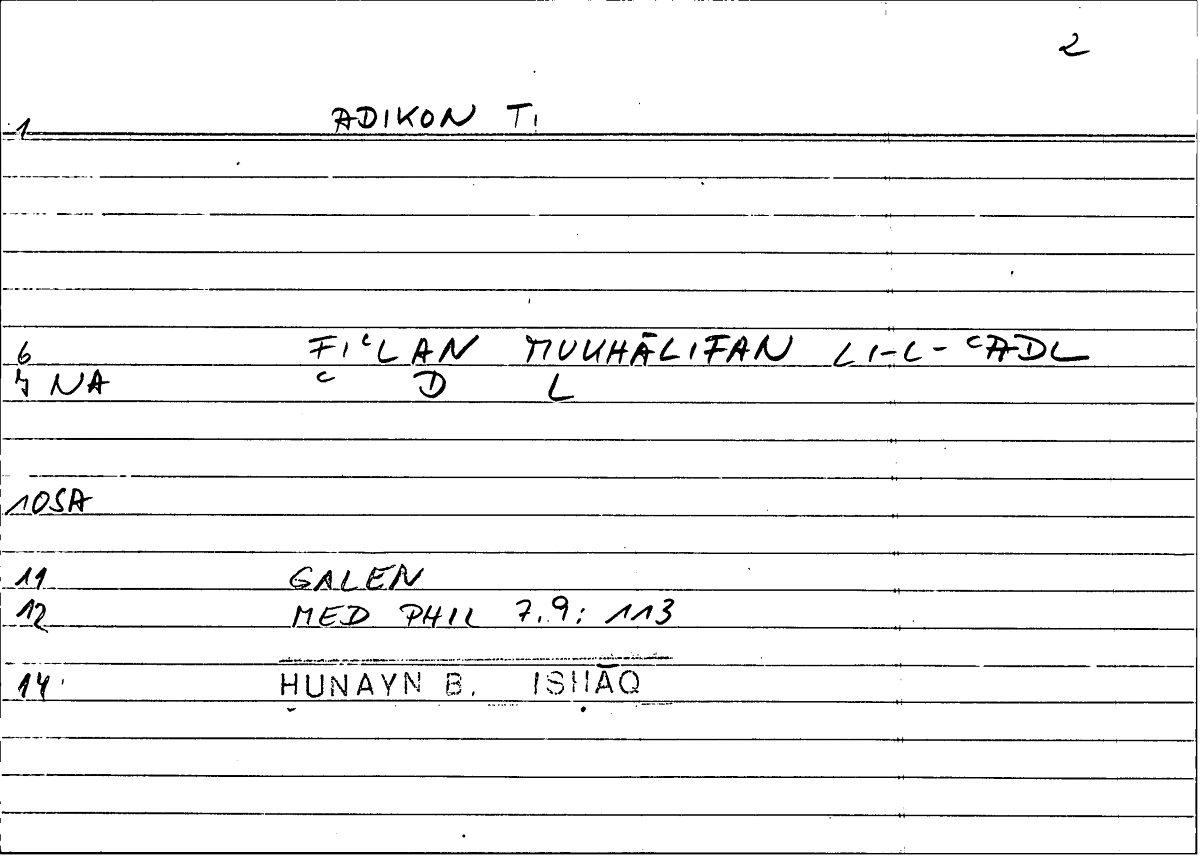 2
1 ADIKON TI
6 FIʿLAN MUKHĀLIFAN LI-L-ʿADL
7 NA ʿ D L
10SA
11 GALEN
12 MED PHIL 7.9: 113
14 ḤUNAYN B. ISḤĀQ